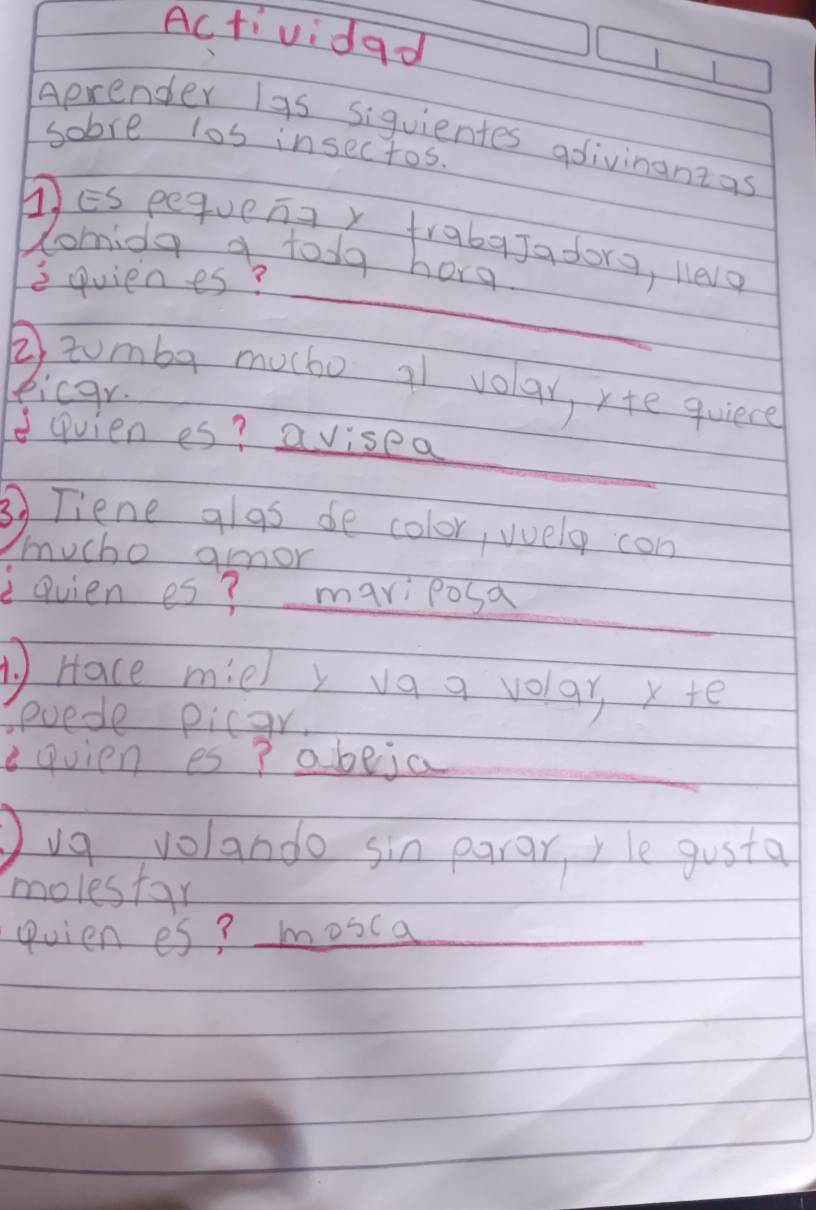 Actividad
Aprender las siguientes adivinanzas
sobre los insectos.
1) Es pequeña y trabaJadora, lleva
comida a toda hora.
¿quien es?
2) zumba mucho al volar, y te quiere
picar.
¿Quien es? avispa
3.) Tiene alas de color, vuela con
mucho amor
¿Quien es? mariposa
1.) Hace miel y va a volar, y te
puede picar.
¿quien es? abeja
) va volando sin parar, y le gusta
molestar
quien es? mosca